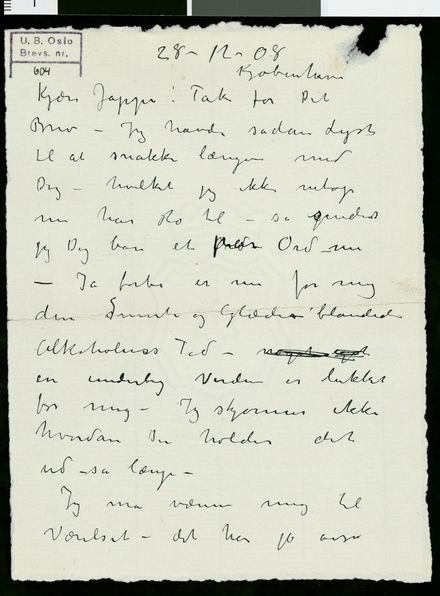 U. B. Oslo
Brevs. nr.
604
28-12-08
Kjøbenhavn
Kjære Jappe! Tak for Dit
Brev – Jeg havde sadan Lyst
til at snakke længe med
Dig – hvilket jeg ikke netop
nu har Ro til – sa sender
jeg Dig bare et Ord – nu
– Ja forbi er nu for mig
den Smerte og Glæde blandede
Alkoholens Tid –
en underlig Verden er lukket
for mig – Jeg skjønner ikke
hvordan Du holder det
ud – sa længe –
Jeg ma vænne mig til
Værelset – det har jo